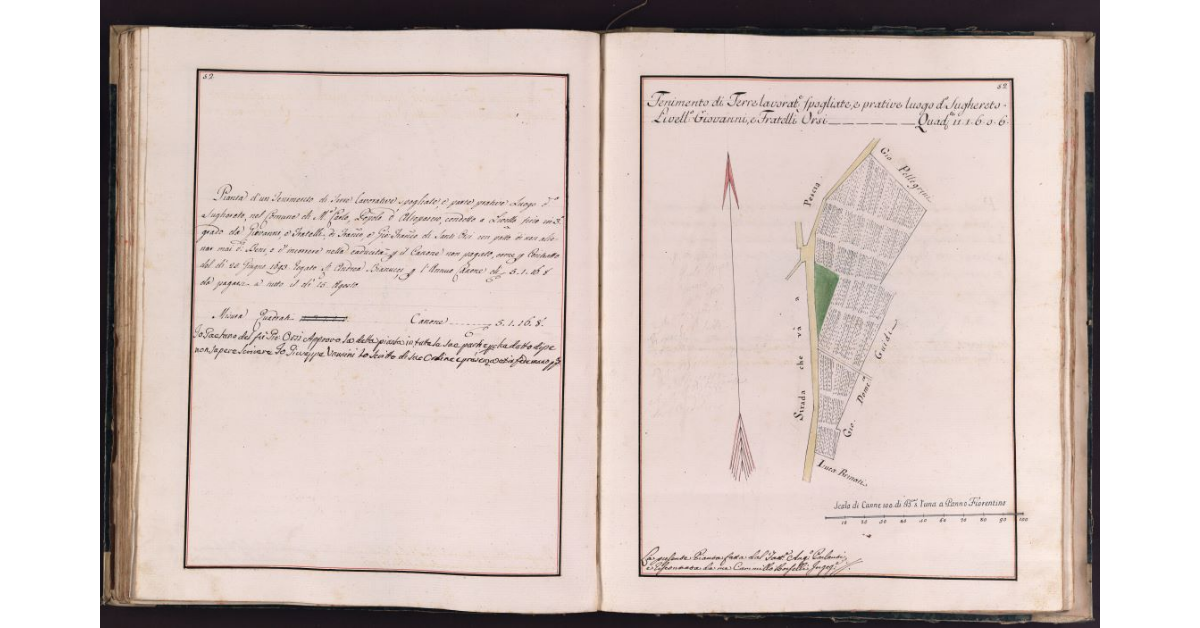 52.
Pianta d'un Tenimento di Terre lavorative spogliate, e parte prative Luogo d.º
Sughereto, nel Comune di M.te Carlo, Popolo d' Altopascio, condotto a Livello fino in 3.º
grado da Giovanni, e Fratelli di Franco, e Gio: Franco di Santi Orsi con patto di non alie-
nar mai d. Beni, e d' incorrere nella caducità p il Canone non pagato, come p Contratto
del dì 20 Giugno 1693. rogato Sr. Andrea p l'Annuo Canone di 5. 1. 16. 8
da pagarsi a tutto il dì 15. Agosto
Misura Quadrati Canone 5. 1. 16. 8.
Io Gaetano del fu Orsi Approvo la detta pianta in tuta la sue parte e p ha detto di
non sapere scrivere Io Giuseppe Vannini ho scrito di suo Ordine e presenza
52.
Tenimento di Terre lavorat.e spogliate, e prative luogo d.º Sughereto.
Livell.i Giovanni, e Fratelli Orsi Quad.ti 11. 1. 6. 0. 6.
Gio: Pellegrini
Pescia.
Strada che và a
Gio: Dom.co Guidi
Luca
Scala di Canne 100. di B.a 5. l'una a Panno Fiorentino
10 20 30 40 50 60 70 80 90 100
La presente Pianta fatta dal Ang.
e Riscontrata da me Cammillo Ing.re